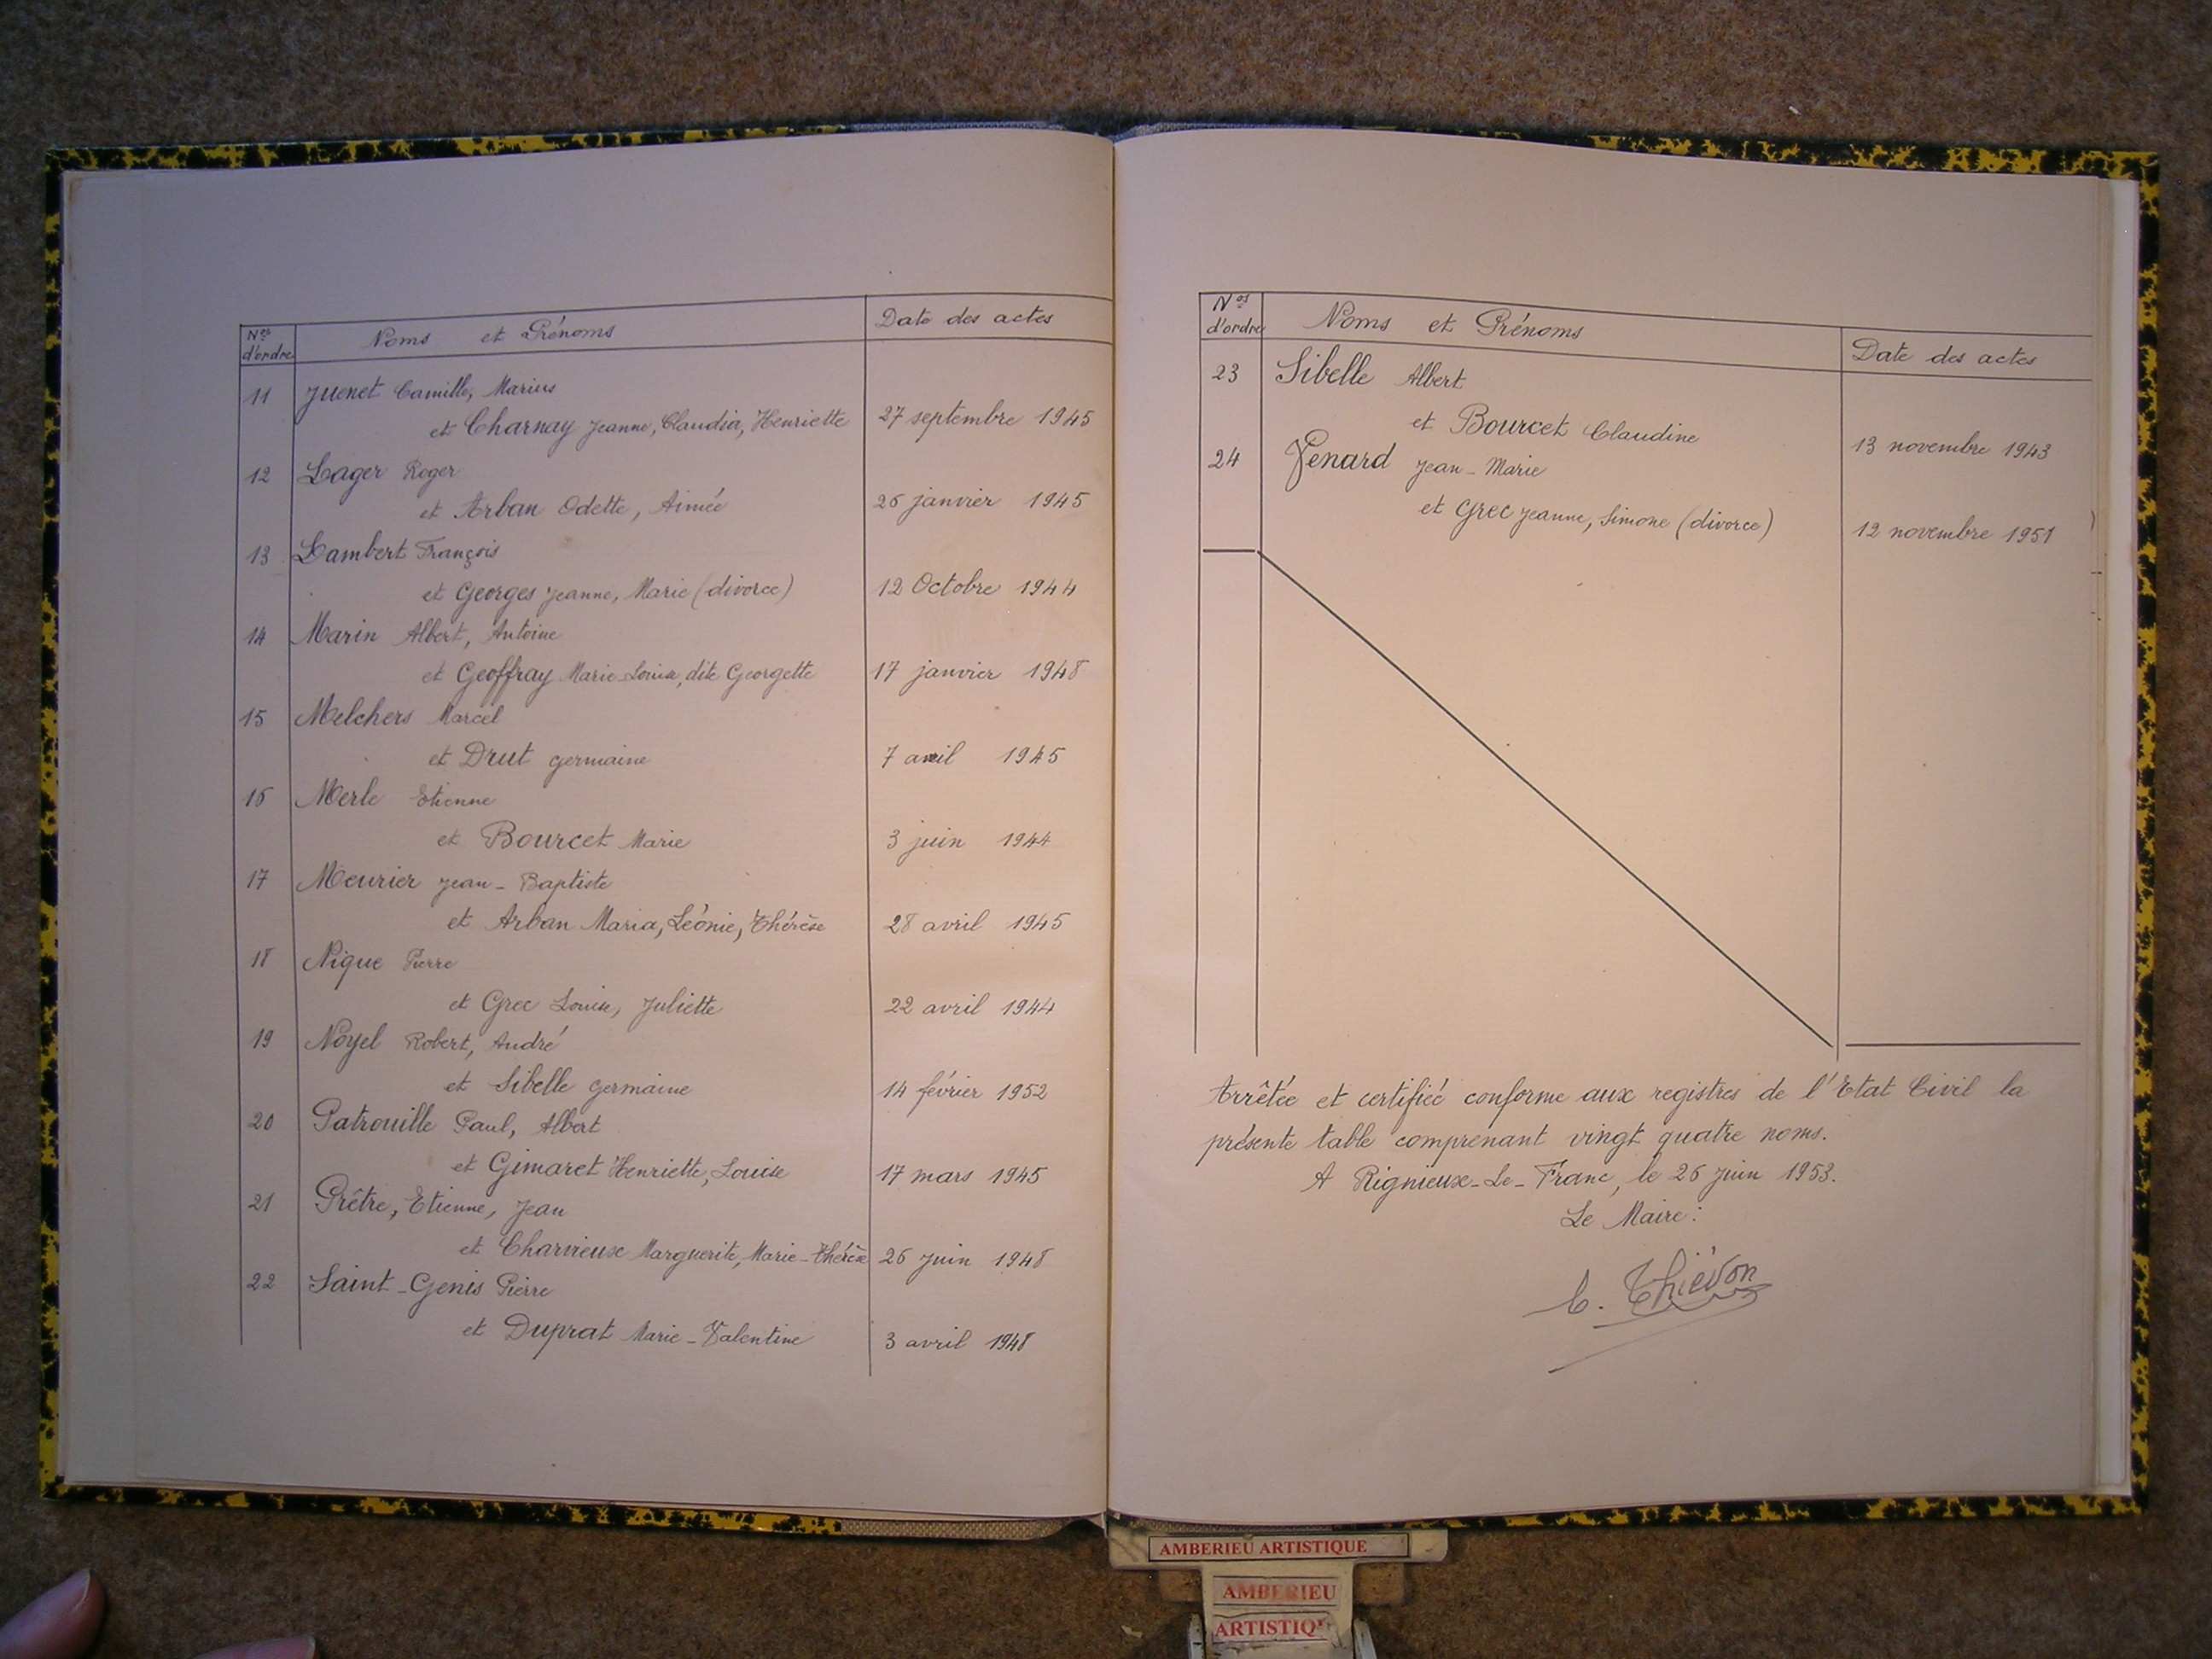 Nos d'ordre Noms et Prénoms Date des actes
11 Juenet Camille, Marius
et Charnay Jeanne, Claudia, Henriette 27 septembre 1945
12 Lager Roger
et Arban Odette, Aimée 26 janvier 1945
13 Lambert François
et Georges Jeanne, Marie (divorce) 12 Octobre 1944
14 Marin Albert, Antoine
et Geoffray Marie-Louise, dite Georgette 17 janvier 1948
15 Melchers Marcel
et Drut Germaine 7 avril 1945
16 Merle Etienne
et Bourcet Marie 3 juin 1944
17 Meurier Jean-Baptiste
et Arban Maria, Léonie, Thérèse 28 avril 1945
18 Nique Pierre
et Grec Louise, Juliette 22 avril 1944
19 Noyel Robert, André
et Sibelle Germaine 14 février 1952
20 Patrouille Paul, Albert
et Gimaret Henriette, Louise 17 mars 1945
21 Prêtre, Etienne, Jean
et Charvieux Marguerite, Marie-Thérèse 26 juin 1948
22 Saint-Genis Pierre
et Duprat Marie-Valentine 3 avril 1948
Nos d'ordre Noms et Prénoms Date des actes
23 Sibelle Albert
et Bourcet Claudine 13 novembre 1943
24 Venard Jean-Marie
et Grec Jeanne, Simone (divorce) 12 novembre 1951
Arrêtée et certifiée conforme aux registres de l'Etat Civil la
présente table comprenant vingt quatre noms.
A Rignieux-Le-Franc, le 26 Juin 1953.
Le Maire:
C. Thiévon
AMBERIEU ARTISTIQUE
AMBERIEU
ARTISTIQ